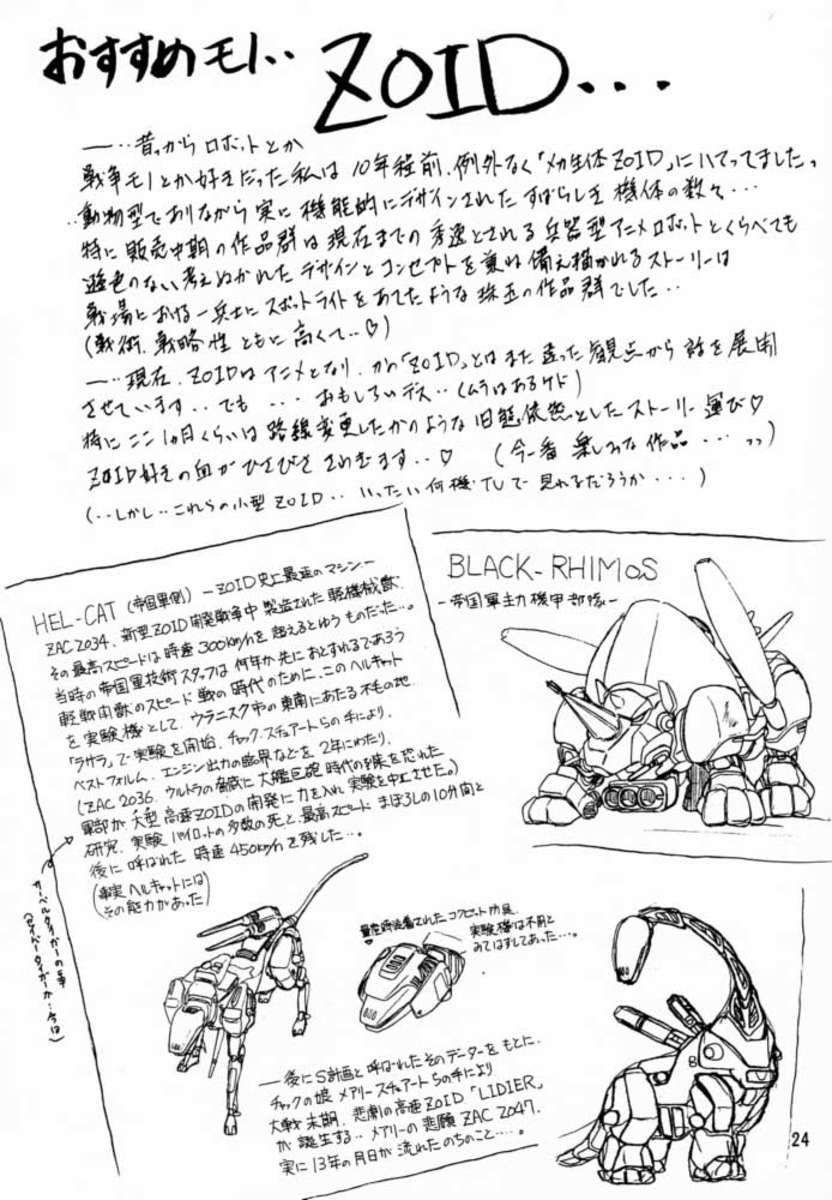 おすすめモノ‥
ZOID...
―‥昔っから ロボットとか
戦争モノとか好きだった私は 10年程前、例外なく「メカ生体ZOID」にハマってましたっ
‥動物型でありながら 実に 機能的にデザインされた すばらしき 機体の数々…
特に 販売中期の作品群は 現在までの 秀逸とされる 兵器型アニメロボットとくらべても
遜色のない 考えぬかれた デザインと コンセプトを 兼ね 備え 描かれる ストーリーは
戦場における 一兵士に スポットライトを あてたような 珠玉の作品群でした‥
(戦術、戦略性 ともに 高くて‥♡)
―‥現在、ZOIDは アニメとなり、かの「ZOID」とは また 違った 観点から 話を 展開
させています‥でも … おもしろいデス‥(ムラはあるケド)
特に ここ 1ヵ月くらいは 路線変更したかのような 旧態依然としたストーリー運び♡
ZOID好きの血が ひさびさ さわぎます‥♡ (今一番 楽しみな 作品…っっ)
(‥しかし‥これらの小型ZOID‥いったい何機 TVで 見れるだろうか…)
HEL-CAT (帝国軍側) -ZOID史上最速のマシン-
ZAC2034、新型ZOID開発戦争中 製造された 軽機械獣、
その最高スピードは 時速300km/hを 超えるとゆう ものだった…。
当時の帝国軍技術スタッフは 何年か先におとずれるであろう
軽戦闘獣のスピード戦の時代のために、このヘルキャット
を 実験機として、ウラニスク市の東南にあたる 不毛の地、
「ラサラ」で 実験を開始、チャック.スチュアートらの手により、
ベストフォルム、エンジン出力の臨界などを 2年にわたり、
(ZAC 2036、ウルトラの脅威に 大艦巨砲 時代の到来を恐れた
軍部が、大型 高速ZOIDの開発に力を入れ 実験を中止させた。)
研究、実験 パイロットの多数の死と、最高スピード まぼろしの10分間と
後に 呼ばれた 時速 450km/hを 残した…。
(事実 ヘルキャットには
その能力があった)
サーベルタイガーの事
(セイバータイガーか…今は)
BLACK-RHIMOS
-帝国軍主力機甲部隊-
量産時装着された コクピット防具、
実験機は不用と
みてはずしてあった…。
―後にS計画と 呼ばれた そのデーターを もとに、
チャックの娘 メアリースチュアートらの手により
大戦 末期、悲劇の高速ZOID「LIDIER」
が 誕生する‥メアリーの 悲願 ZAC 2047、
実に 13年の月日が 流れた のちのこと…。
24